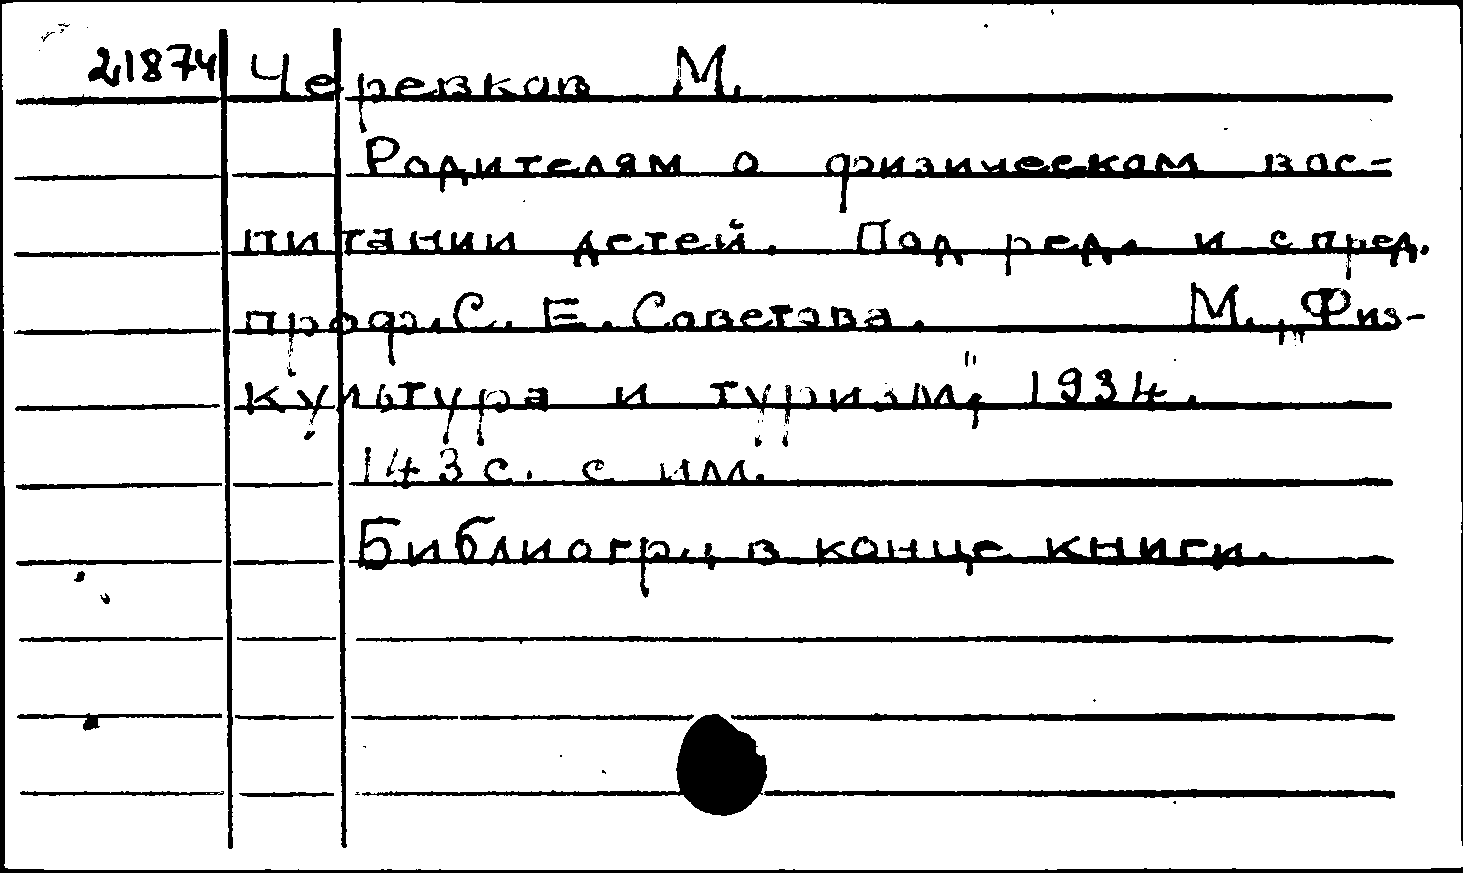 21874 Черевков М.
Родителям о физическом вос-
питании детей. Под ред. и с пред.
проф. С. Е. Советова. М., „Физ-
культура и туризм", 1934.
143 с. с илл.
Библиогр., в конце книги.